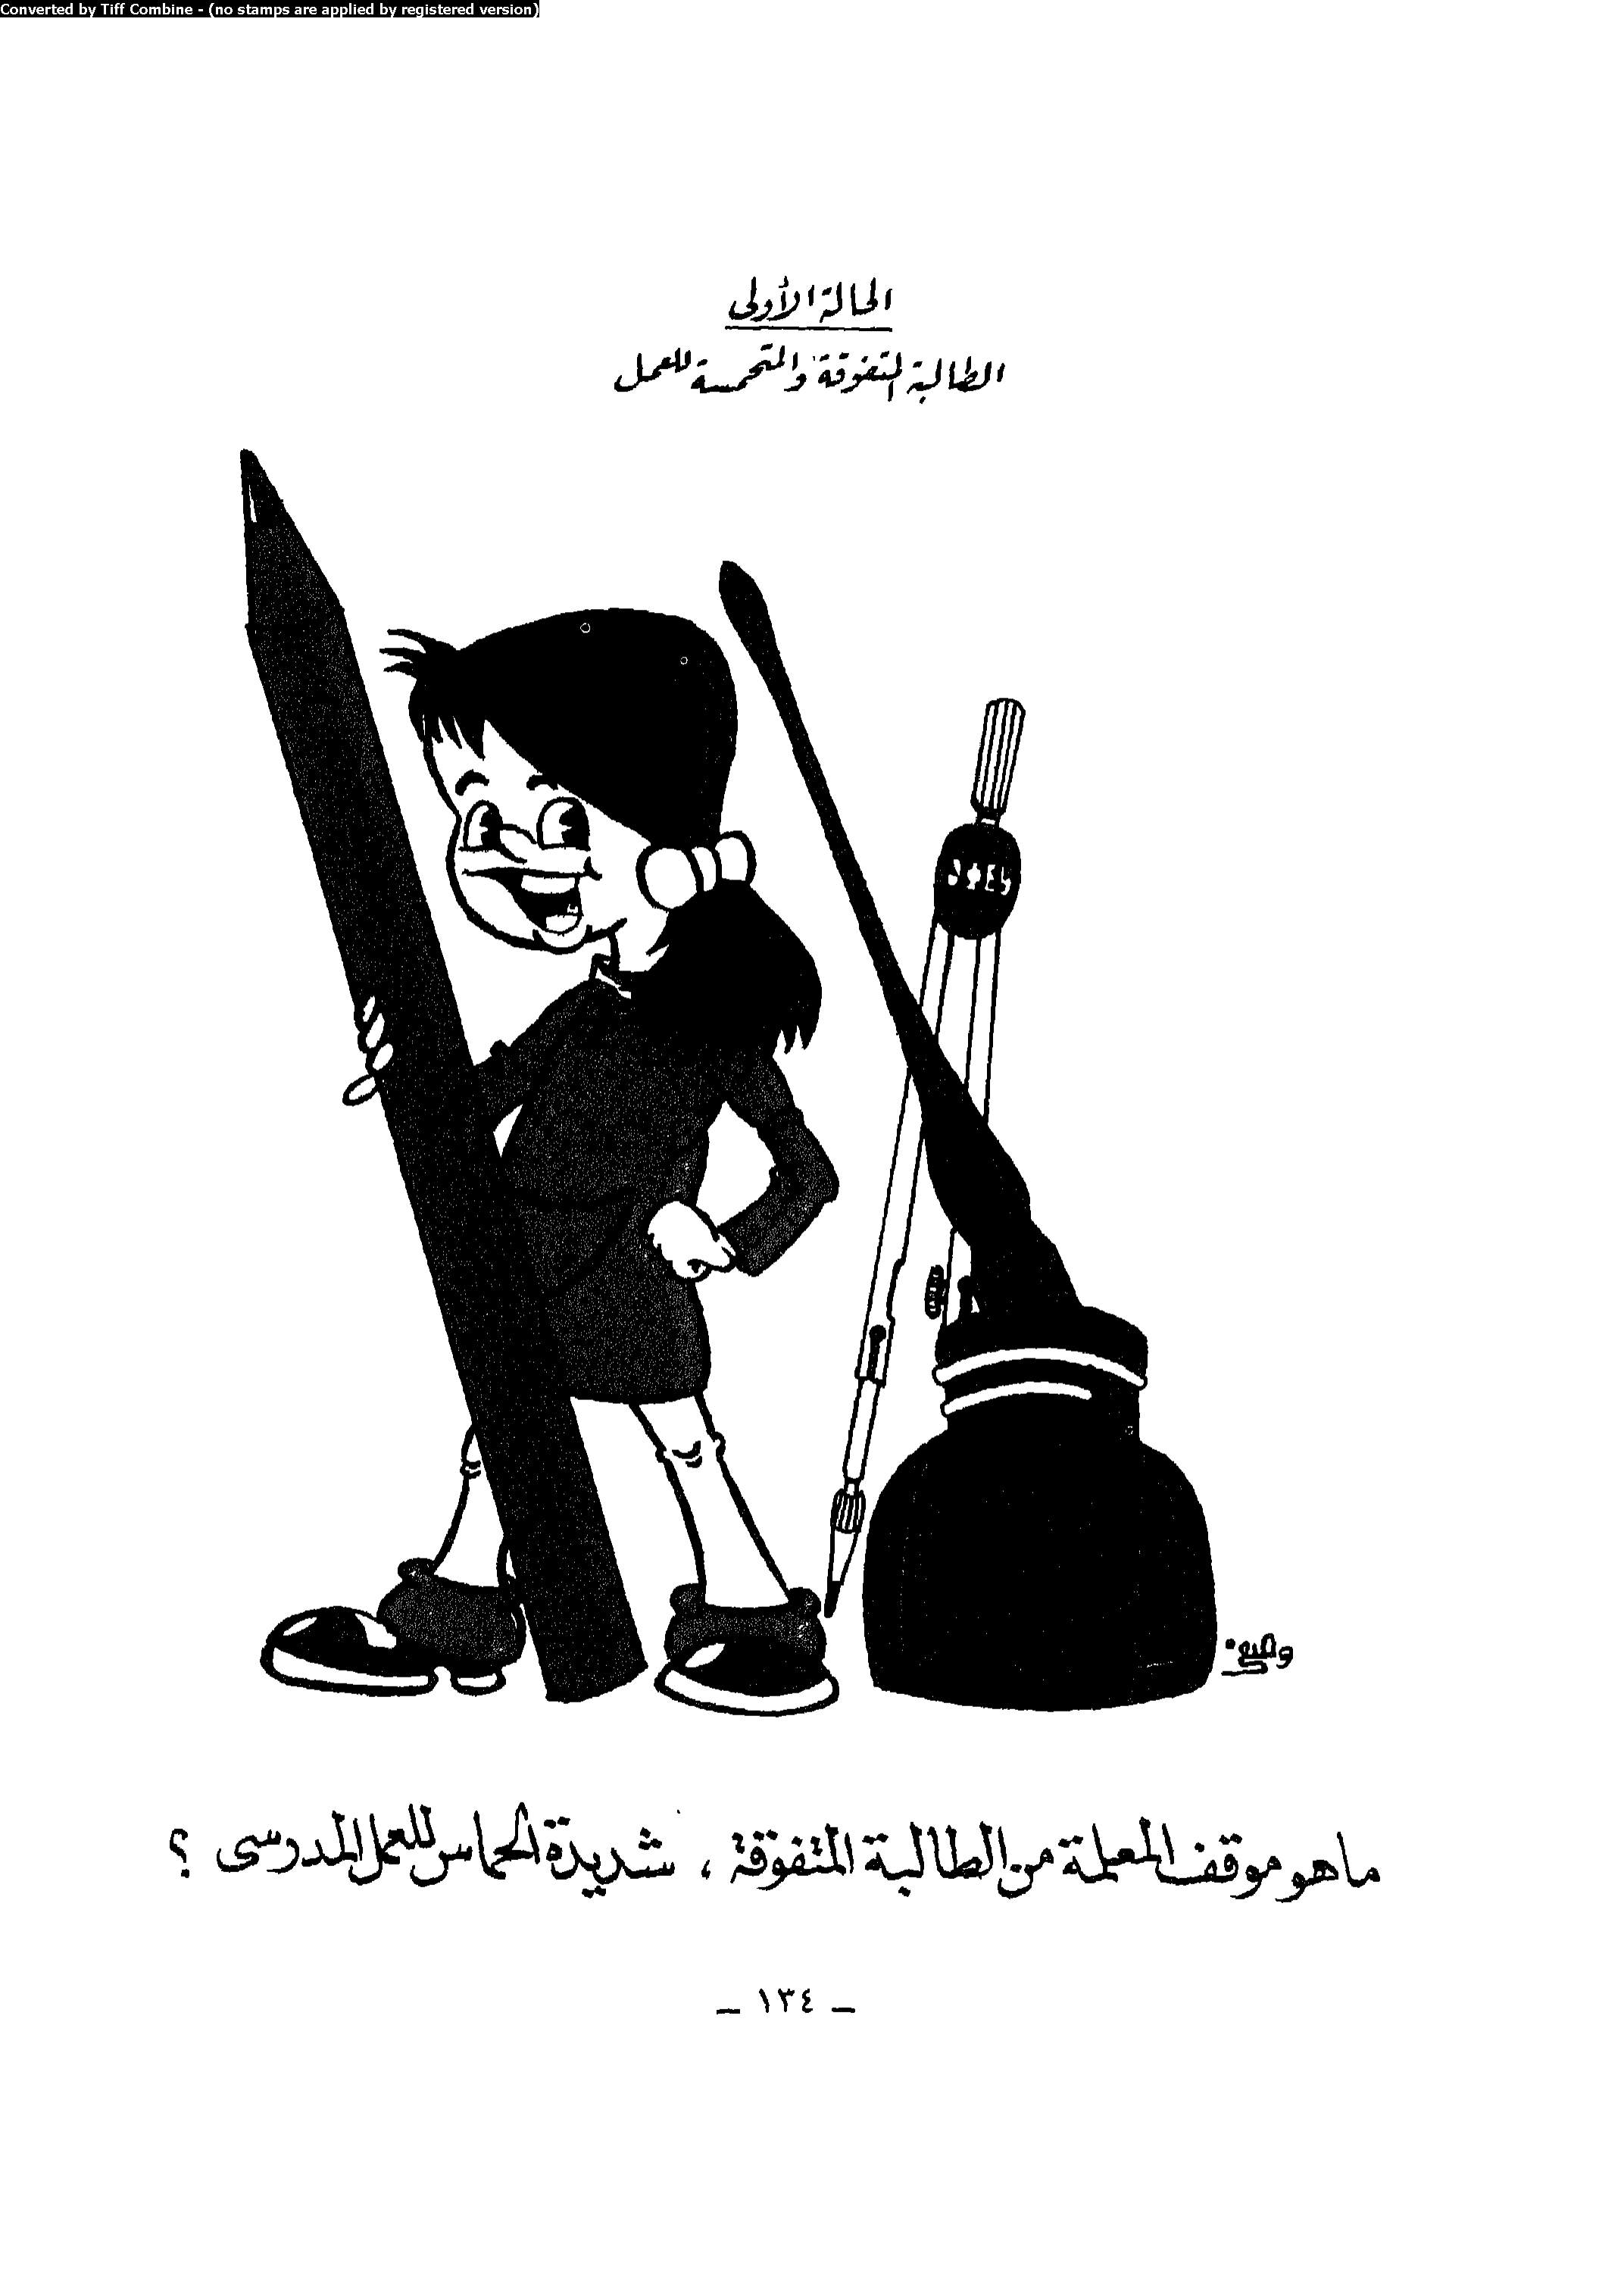 Converted by Tiff Combine - (no stamps are applied by registered version)
الحالة الأولى
الطالبة المتفوقة والمتحمسة للعمل
ما هو موقف المعلمة من الطالبة المتفوقة ، شديدة الحماس للعمل المدرسى ؟
_ ١٣٤ _